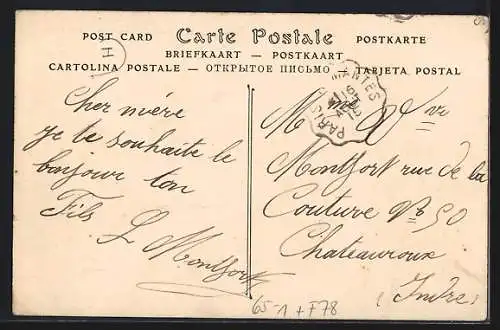 POST CARD Carte Postale POSTKARTE
BRIEFKAART — POSTKAART
CARTOLINA POSTALE — ОТКРЫТОЕ ПИСЬМО — TARJETA POSTAL
H
Cher mère
je te souhaite le
bonjour ton
Fils
L Montfort
PARIS
Mme Vve
Montfort rue de la
Couture No 50
Chateauroux
(Indre)
65-1 + F78